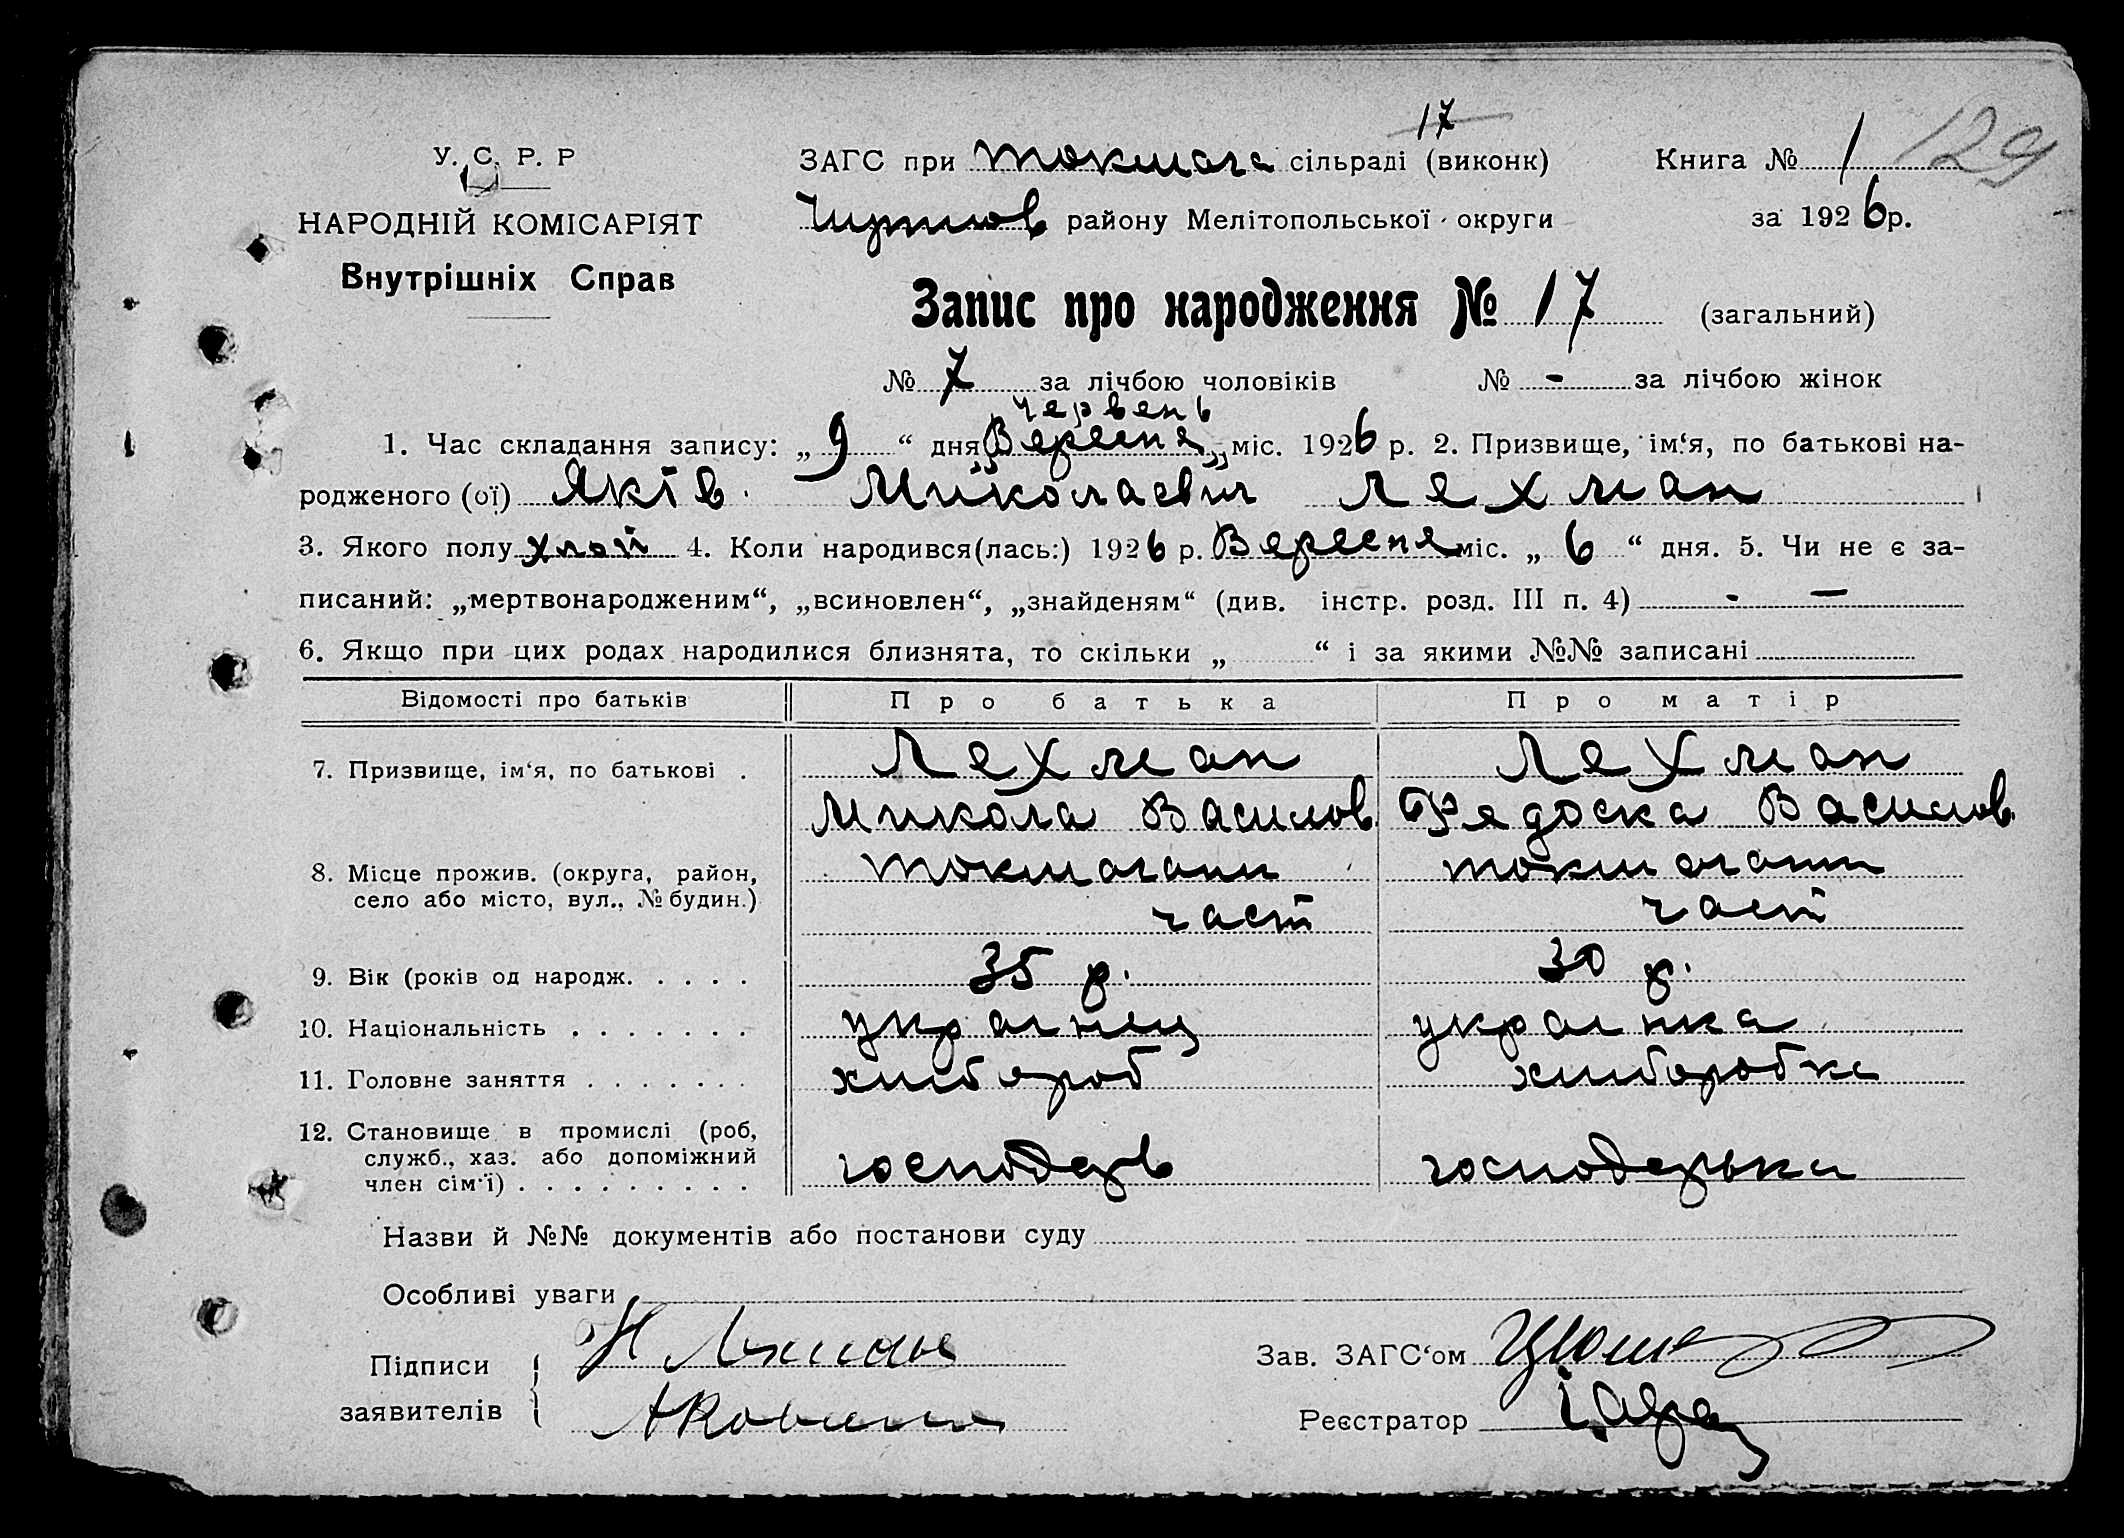 17
У. С. Р. Р
НАРОДНІЙ КОМІСАРІЯТ
Внутрішніх Справ
ЗАГС при сільраді (виконк)
Книга № 1 129
району Мелітопольської округи
за 1926р.
Запис про народження № 17 (загальний)
№ 7 за лічбою чоловіків № - за лічбою жінок
Червень
1. Час складання запису: „ 9 “ дня „Вересня„ міс. 1926 р. 2. Призвище, ім‘я, по батькові на-
родженого (ої) Яків Миколаевич Лехман
3. Якого полу хлоп 4. Коли народився(лась:) 1926 р. Вересня міс. „ 6 “ дня. 5. Чи не є за-
писаний: „мертвонародженим“, „всиновлен“, „знайденям“ (див. інстр. розд. III п. 4) - —
6. Якщо при цих родах народилися близнята, то скільки „ “ і за якими №№ записані
Відомості про батьків Про батька Про матір
7. Призвище, ім‘я, по батькові . Лехман Лехман
Микола Василов. Федоска Василов.
8. Місце прожив. (округа, район,
село або місто, вул., № будин.)
част част
9. Вік (років од народж. . . . . 35 р. 30 р.
10. Національність . . . . . . . українец українка
11. Головне заняття . . . . . . . хлибороб хлиборобка
12. Становище в промислі (роб,
служб., хаз. або допоміжний
член сім‘ї) . . . . . . . . . господарь господарька
Назви й №№ документів або постанови суду
Особливі уваги
Підписи Н Лехман Зав. ЗАГС‘ом
заявителів Реєстратор